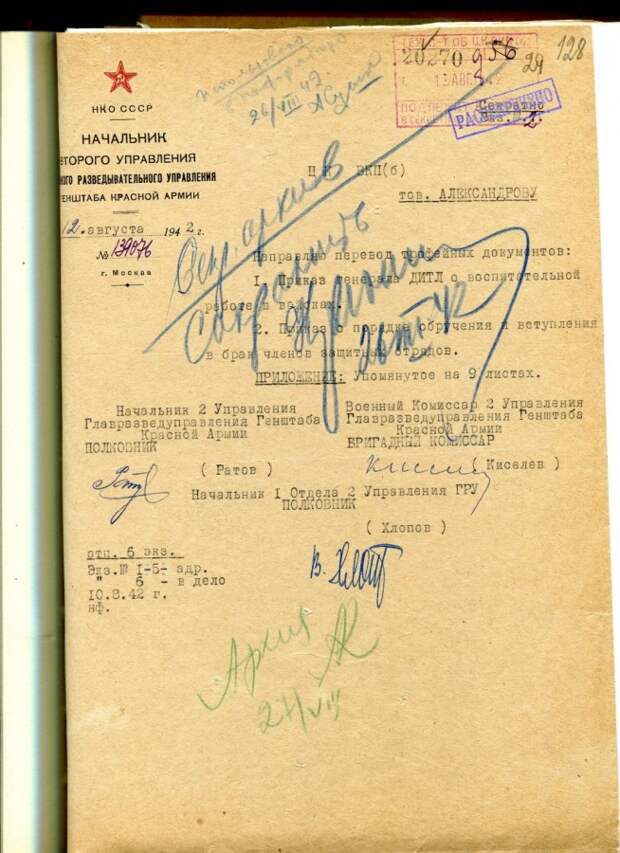 128
20270
956
29
13 АВГ
Секретно
Экз. № 2
РАССЕКРЕЧЕНО
26/VIII 42.
НКО СССР
НАЧАЛЬНИК
ВТОРОГО УПРАВЛЕНИЯ
НОГО РАЗВЕДЫВАТЕЛЬНОГО УПРАВЛЕНИЯ
ГЕНШТАБА КРАСНОЙ АРМИИ
12. августа 1942 г.
№ 139076
г. Москва
Ц К ВКП(б)
тов. АЛЕКСАНДРОВУ
Секр. архив
Сохранить
Направляю перевод трофейных документов:
1. Приказ генерала ДИТЛ о воспитательной
работе в войсках.
2. Приказ о порядке обручения и вступления
в брак членов защитных отрядов.
ПРИЛОЖЕНИЕ: Упомянутое на 9 листах.
Начальник 2 Управления
Главразведуправления Генштаба
Красной Армии
ПОЛКОВНИК
(Ратов)
Военный Комиссар 2 Управления
Главразведуправления Генштаба
Красной Армии
БРИГАДНЫЙ КОМИССАР
(Киселев)
Начальник I Отдела 2 Управления ГРУ
ПОЛКОВНИК
(Хлопов)
отп. 6 экз.
Экз.№ 1-5- адр.
" 6 - в дело
10.8.42 г.
нф.
Архив
27/VIII